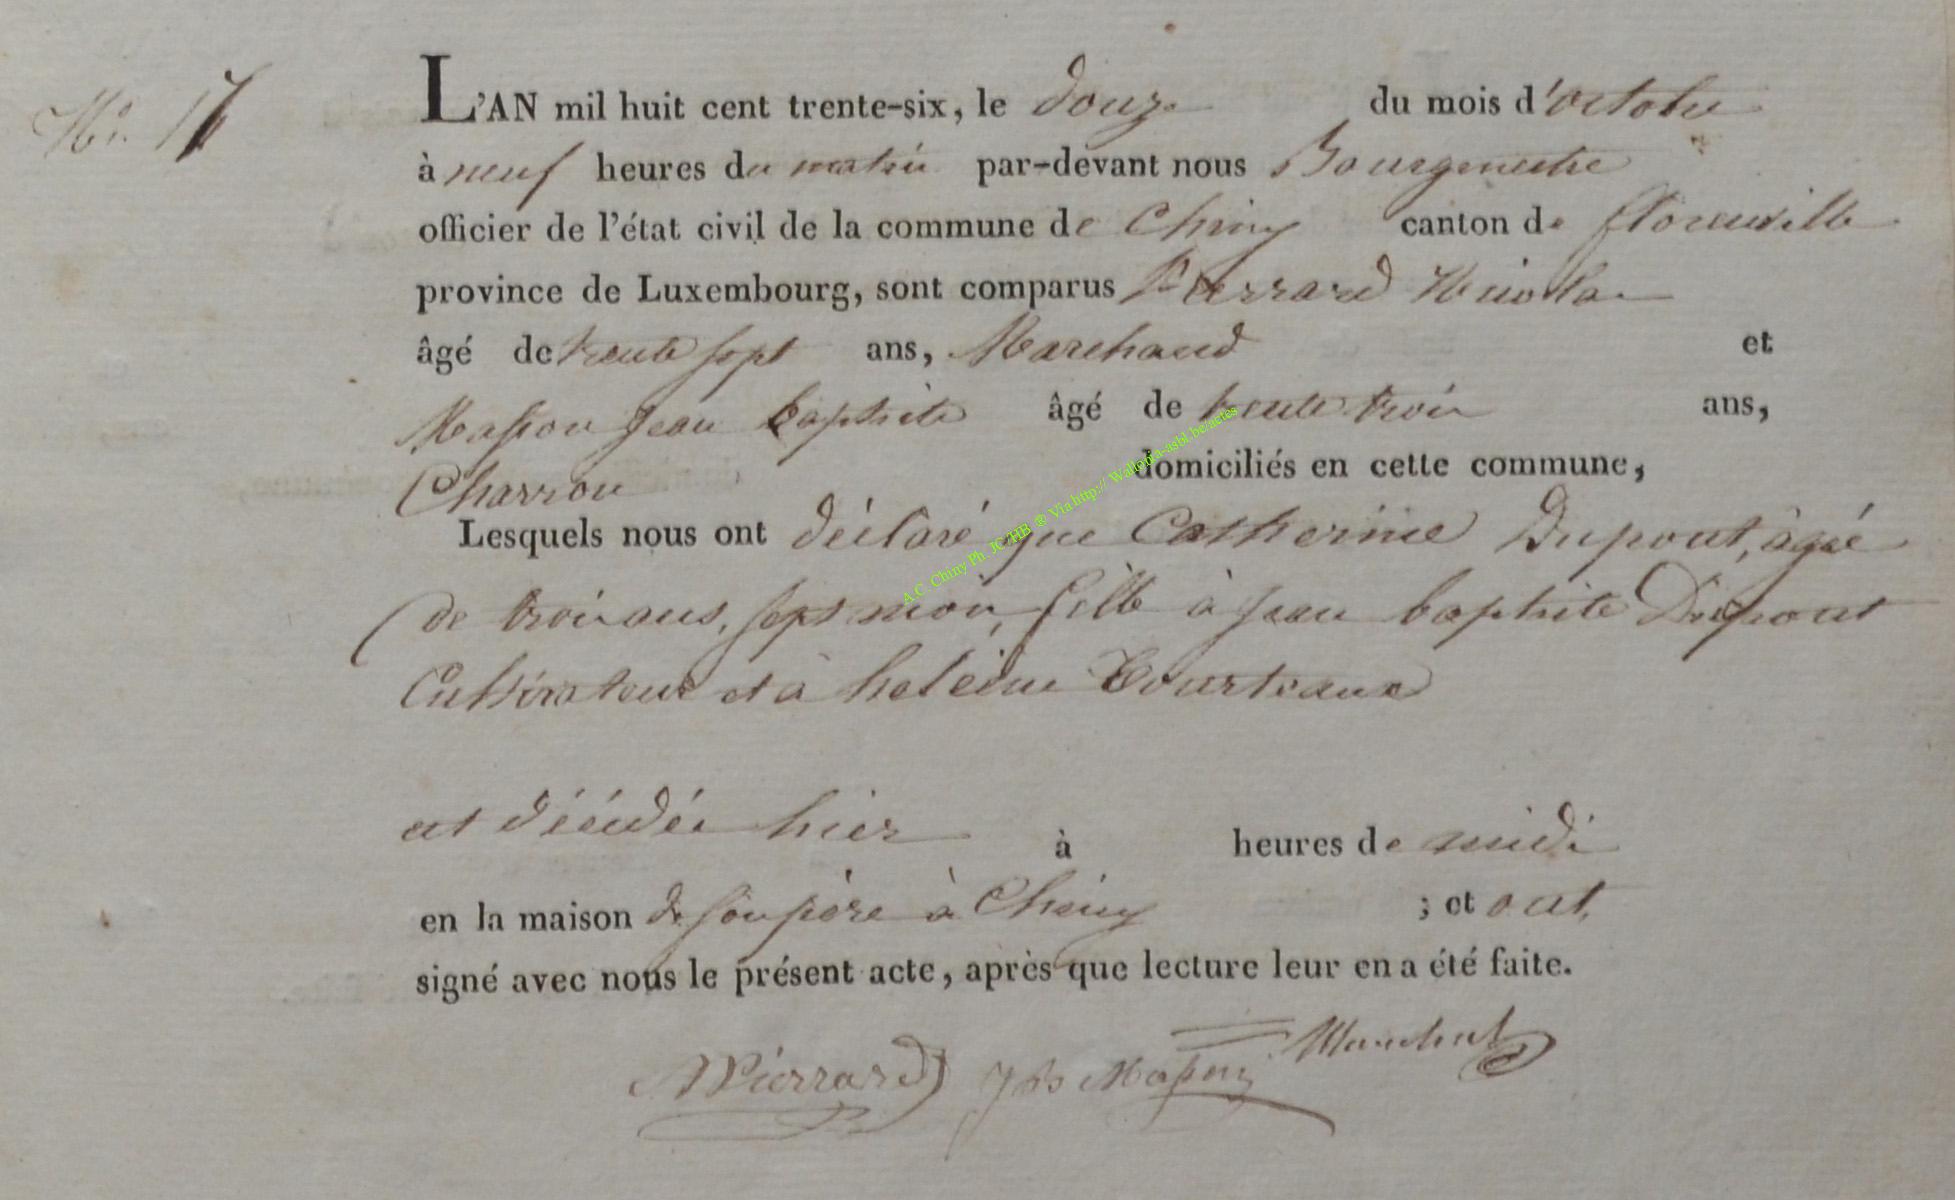 No. 17
L'AN mil huit cent trente-six, le douze du mois d'octobre
à neuf heures du matin par-devant nous Bourgmestre
officier de l'état civil de la commune de Chiny canton de florenville
province de Luxembourg, sont comparus Pierrard Nicolas
âgé de trente sept ans, Marchand et
Masson Jean baptiste âgé de trente trois ans,
Charron domiciliés en cette commune,
Lesquels nous ont déclaré que Catherine Dupont, âgée
de trois ans, sept mois, fille à Jean baptiste Dupont
Cultivateur et à heléine Courteaux
est décédée hier à heures de midi
en la maison de son père à Chiny ; et ont
signé avec nous le présent acte, après que lecture leur en a été faite.
NPierrard Jbte Masson
A.C. Chiny Ph. JC/HB ® Via http://Wallonia-asbl.be/actes